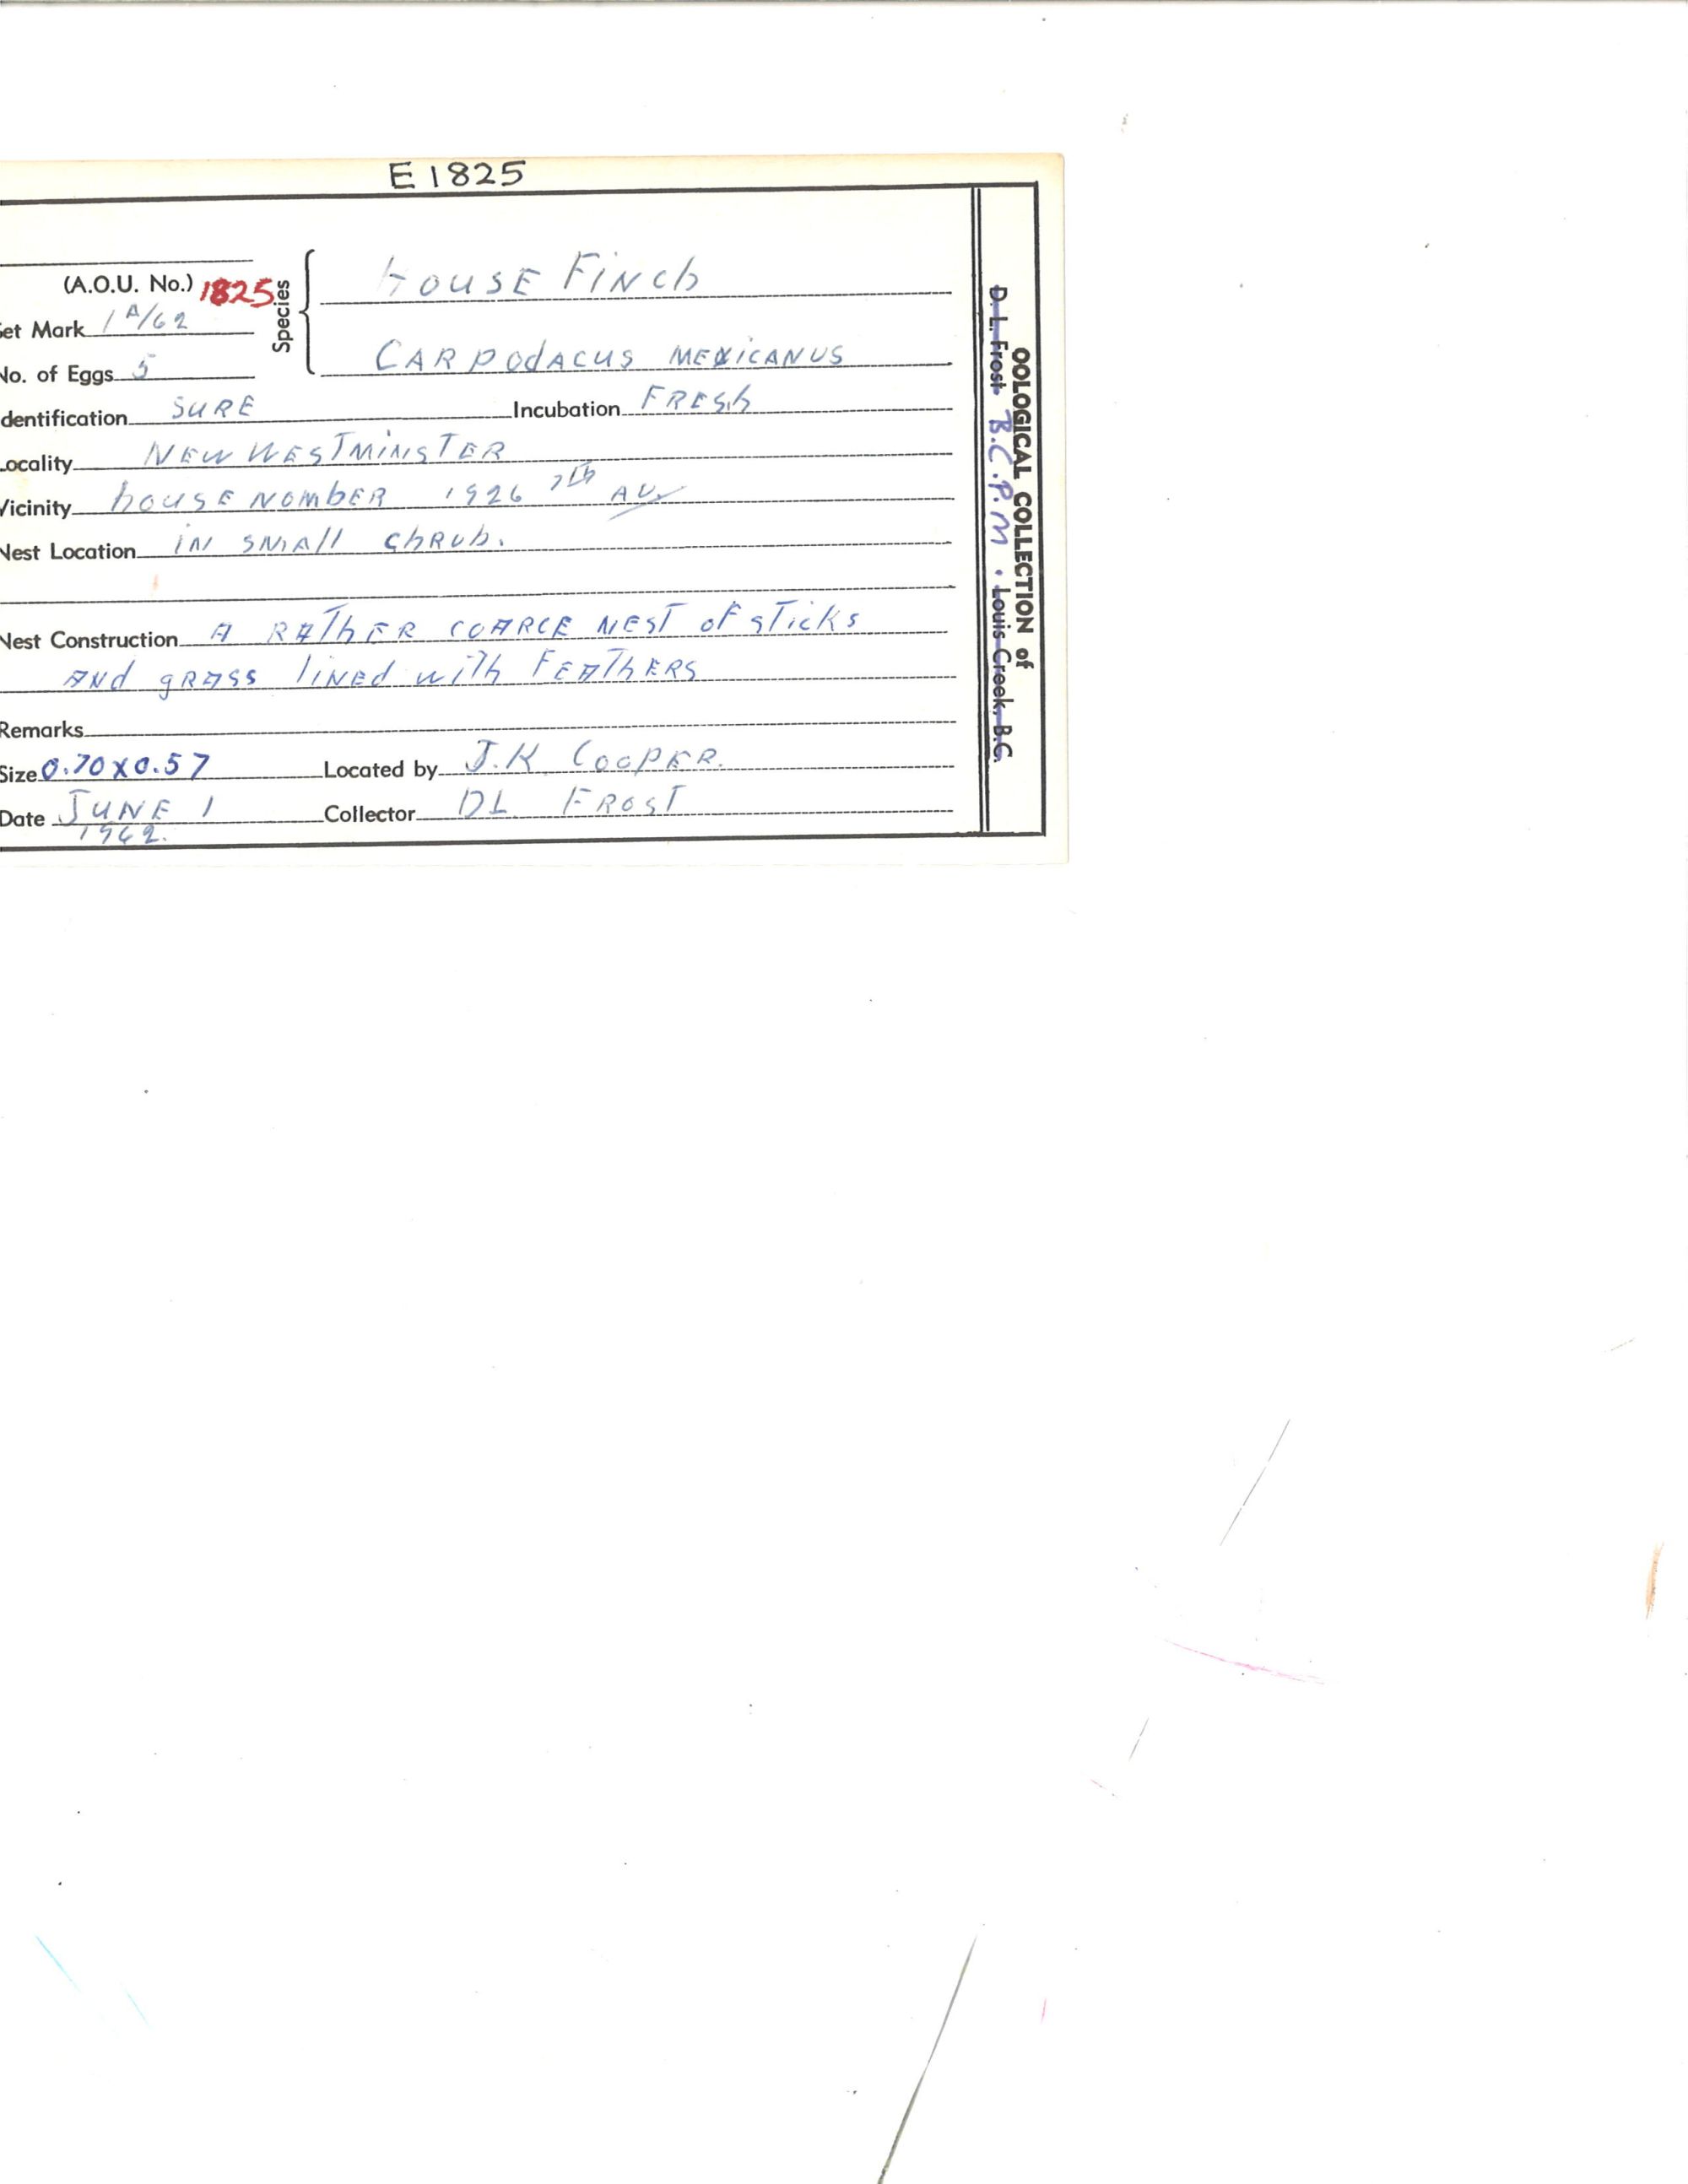 E 1825
(A.O.U. No.) 1825
Species
house Finch
et Mark 1 A/62
CARPODACUS MEXICANUS
No. of Eggs 5
dentification SURE Incubation FRESh
ocality NEW WESTMiNSTER
Vicinity houSE NOMbER 1926 7Th AV
Nest Location iN SMAll ChRub.
Nest Construction A RAThER COARCE NEST oF STicks
ANd gRASS liNEd with FEAThERS
Remarks
Size 0.70 X 0.57 Located by J.K COOPER.
Date JUNE 1 Collector DL FROST
1962.
OOLOGICAL COLLECTION of
D. L. Frost B.C.P.M. Louis Creek, B.C.